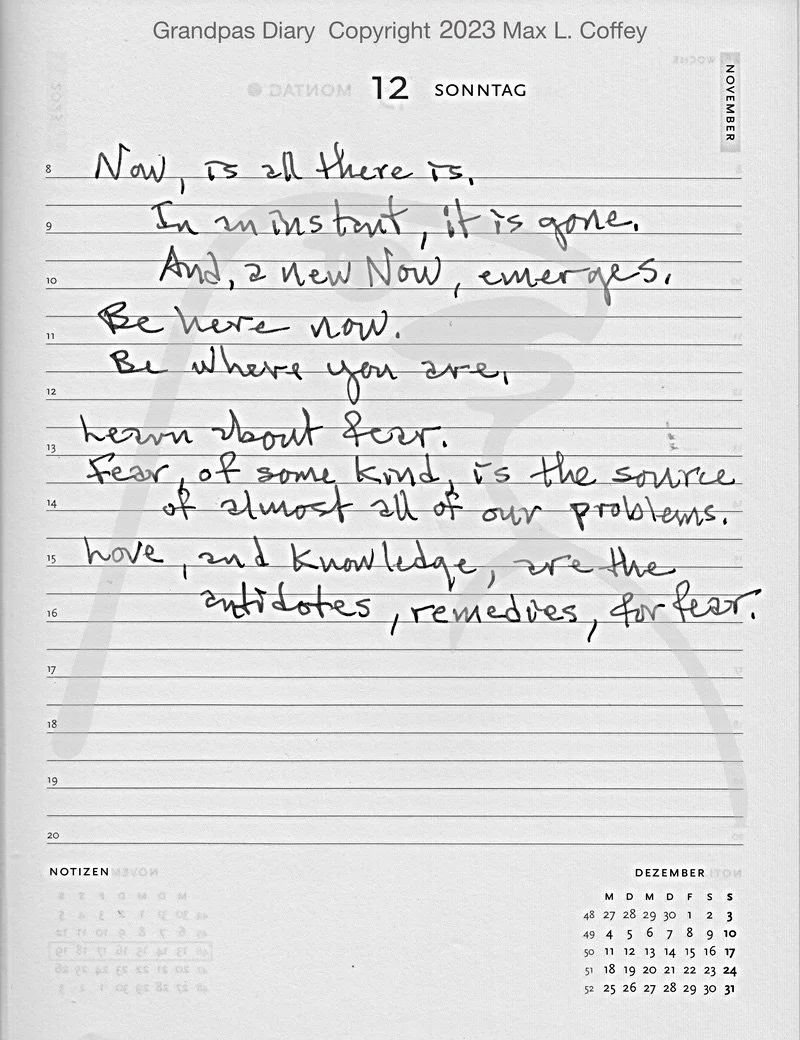 Grandpas Diary Copyright 2023 Max L. Coffey
12 SONNTAG
NOVEMBER
8 Now, is all there is.
9 In an instant, it is gone.
10 And, a new Now, emerges.
11 Be here now.
Be where you are,
12
13 Learn about fear.
Fear, of some kind, is the source
14 of almost all of our problems.
15 Love, and knowledge, are the
16 antidotes, remedies, for fear.
17
18
19
20
NOTIZEN
DEZEMBER
M D M D F S S
48 27 28 29 30 1 2 3
49 4 5 6 7 8 9 10
50 11 12 13 14 15 16 17
51 18 19 20 21 22 23 24
52 25 26 27 28 29 30 31